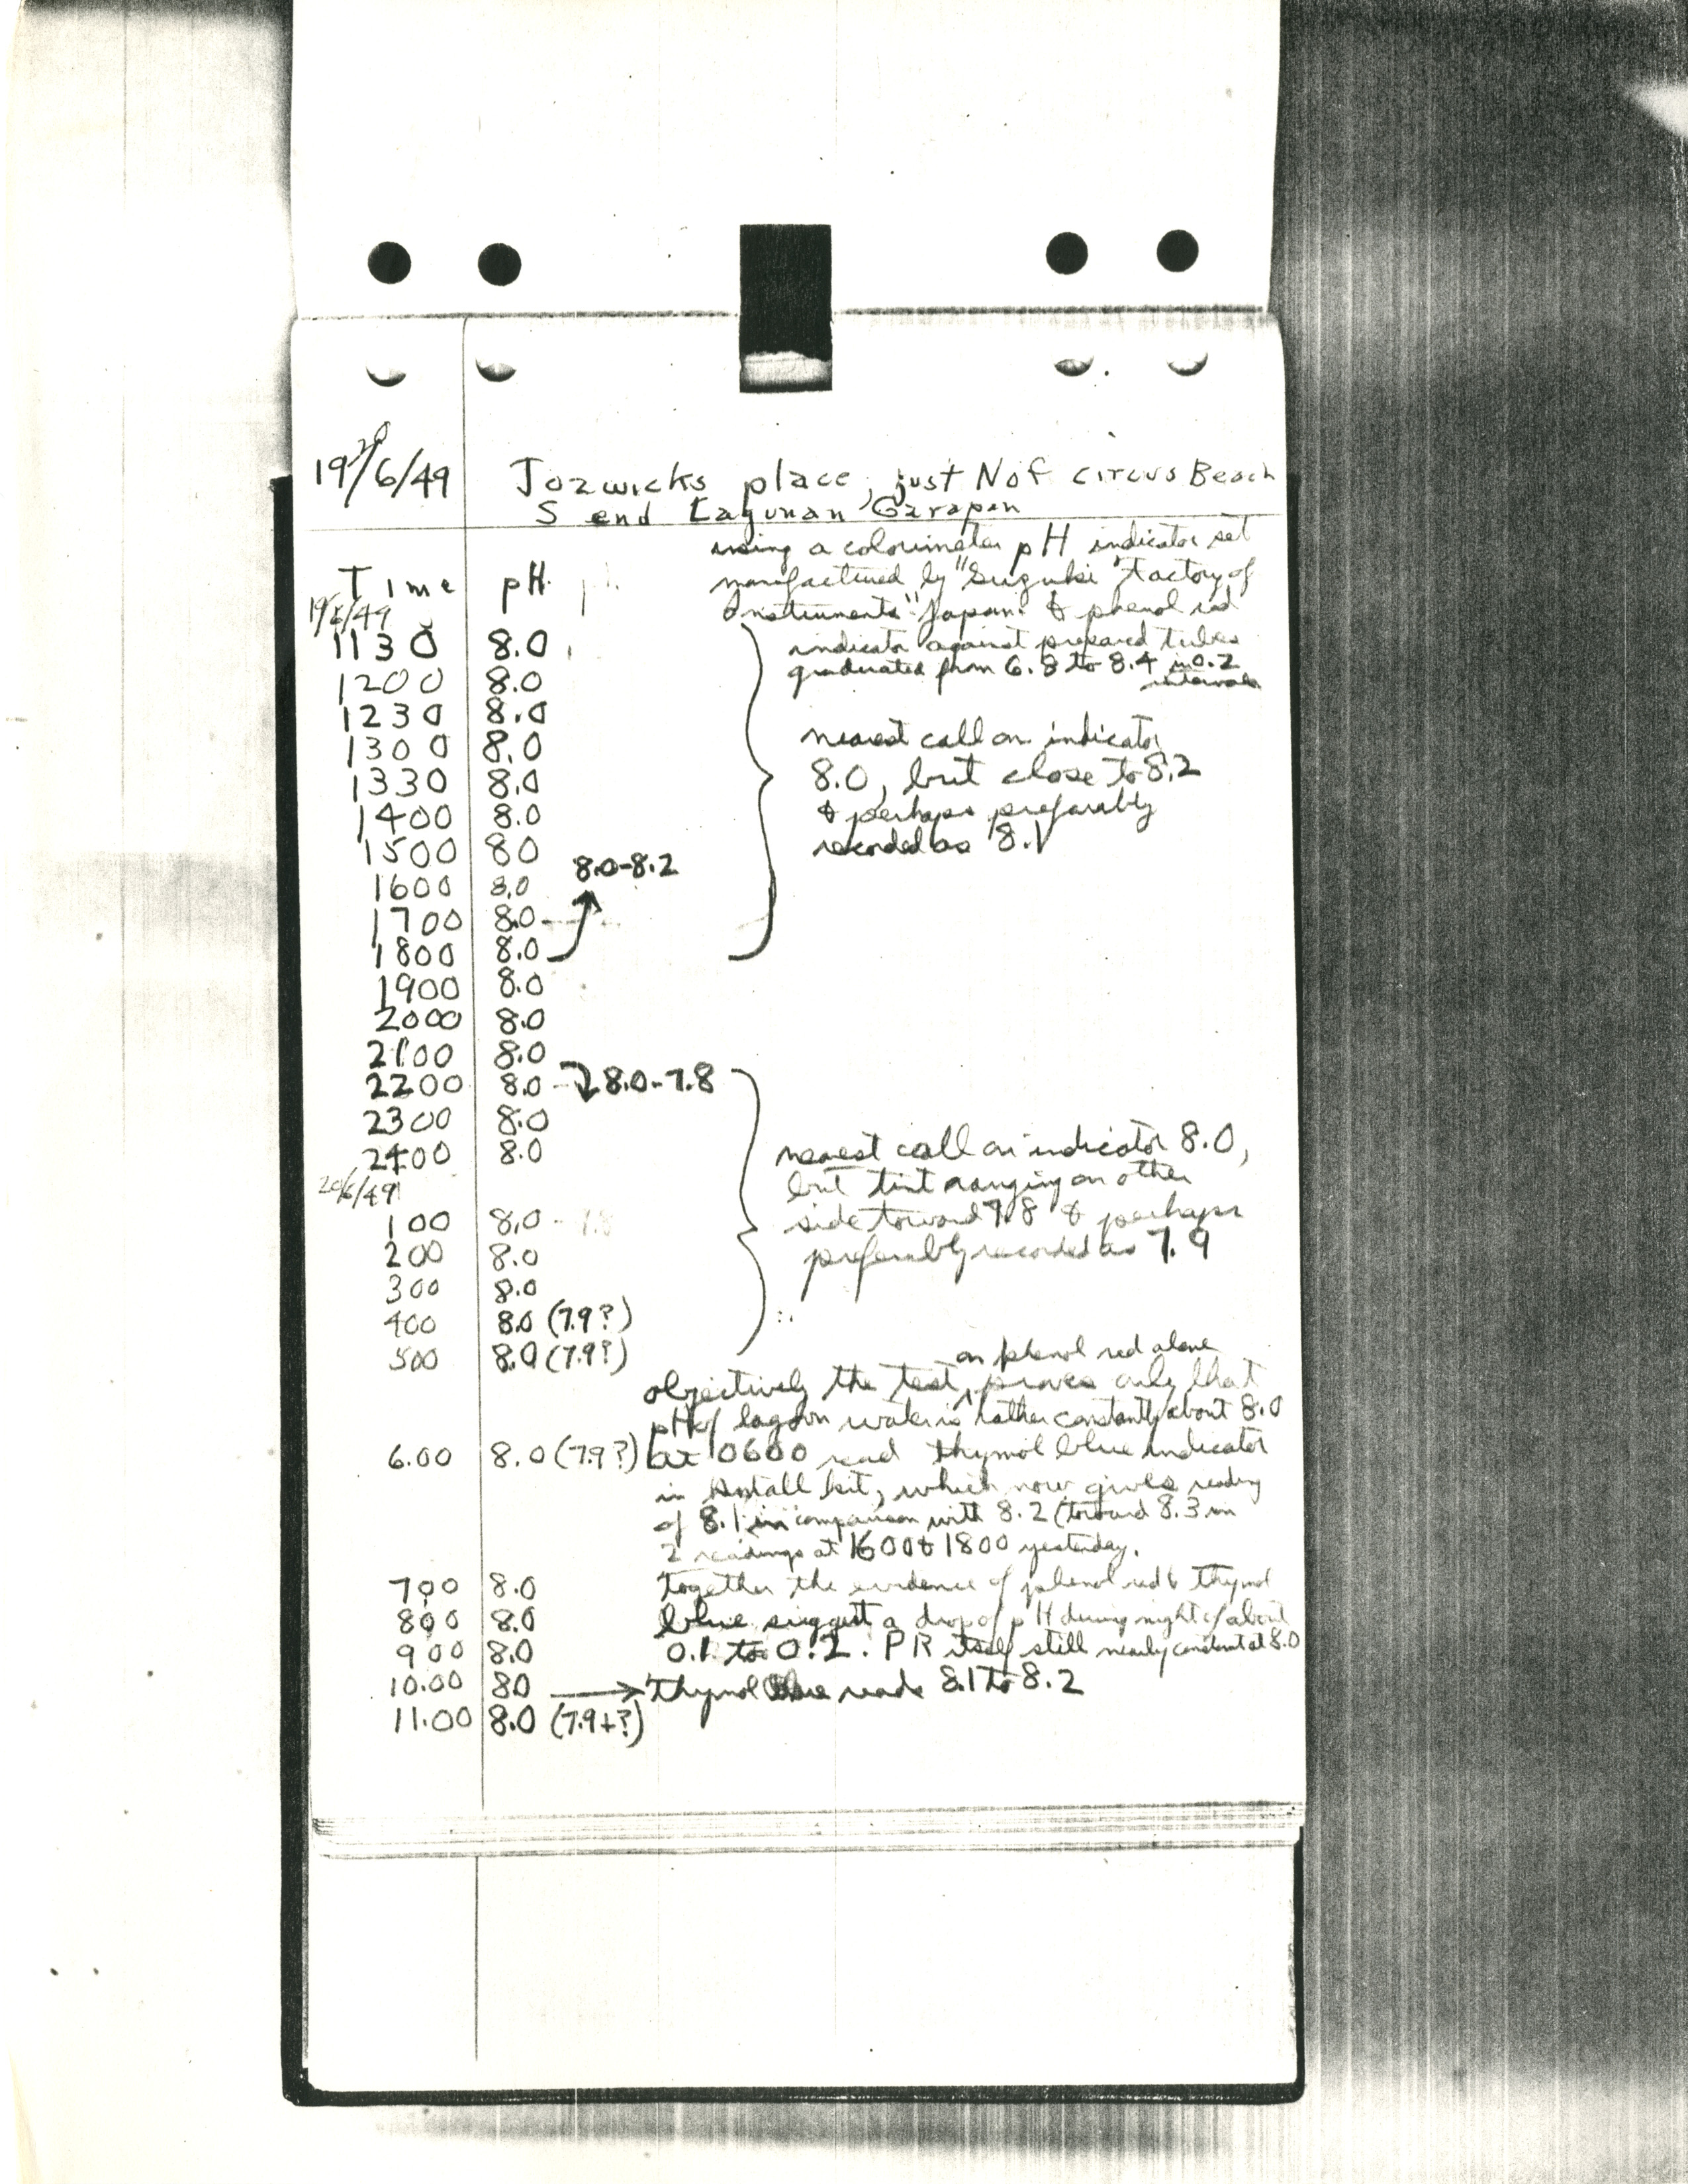 19-20/6/49 Jozwicks place, just N of circus Beach
S end Lagunan Garapan
using a colorimeter pH indicator set
Time pH manufactured by "Suzuki Factory of
19/6/49 Instruments" Japan. & phenol red
1130 8.0 indicator against prepared tubes
graduated from 6.8 to 8.4 in 0.2
intervals
1200 8.0
1230 8.0
1300 8.0 nearest call on indicator
1330 8.0 8.0, but close to 8.2
1400 8.0 & perhaps preferably
1500 80 recorded as 8.1
8.0-8.2
1600 8.0
1700 8.0
1800 8.0
1900 8.0
2000 8.0
2100 8.0
2200 8.0 - 8.0-7.8
2300 8.0
2400 8.0 nearest call on indicator 8.0,
20/6/49 but tint ranging on other
100 8.0 - 7.8 side toward 7.8 & perhaps
200 8.0 preferably recorded as 7.9
300 8.0
400 8.0 (7.9?)
500 8.0 (7.9?)
on phenol red alone
objectively the test proves only that
pH of lagoon water is rather constantly about 8.0
6.00 8.0 (7.9?) at 0600 read thymol blue indicator
in kit, which now gives reading
of 8.1 in comparison with 8.2 (toward 8.3 in
2 readings at 1600 & 1800 yesterday.
700 8.0 together the evidence of phenol red & thymol
800 8.0 blue suggest a drop of pH during night of about
900 8.0 0.1 to 0.2. PR itself still nearly constant at 8.0
10.00 80 → Thymol blue reads 8.1 to 8.2
11.00 8.0 (7.9+?)